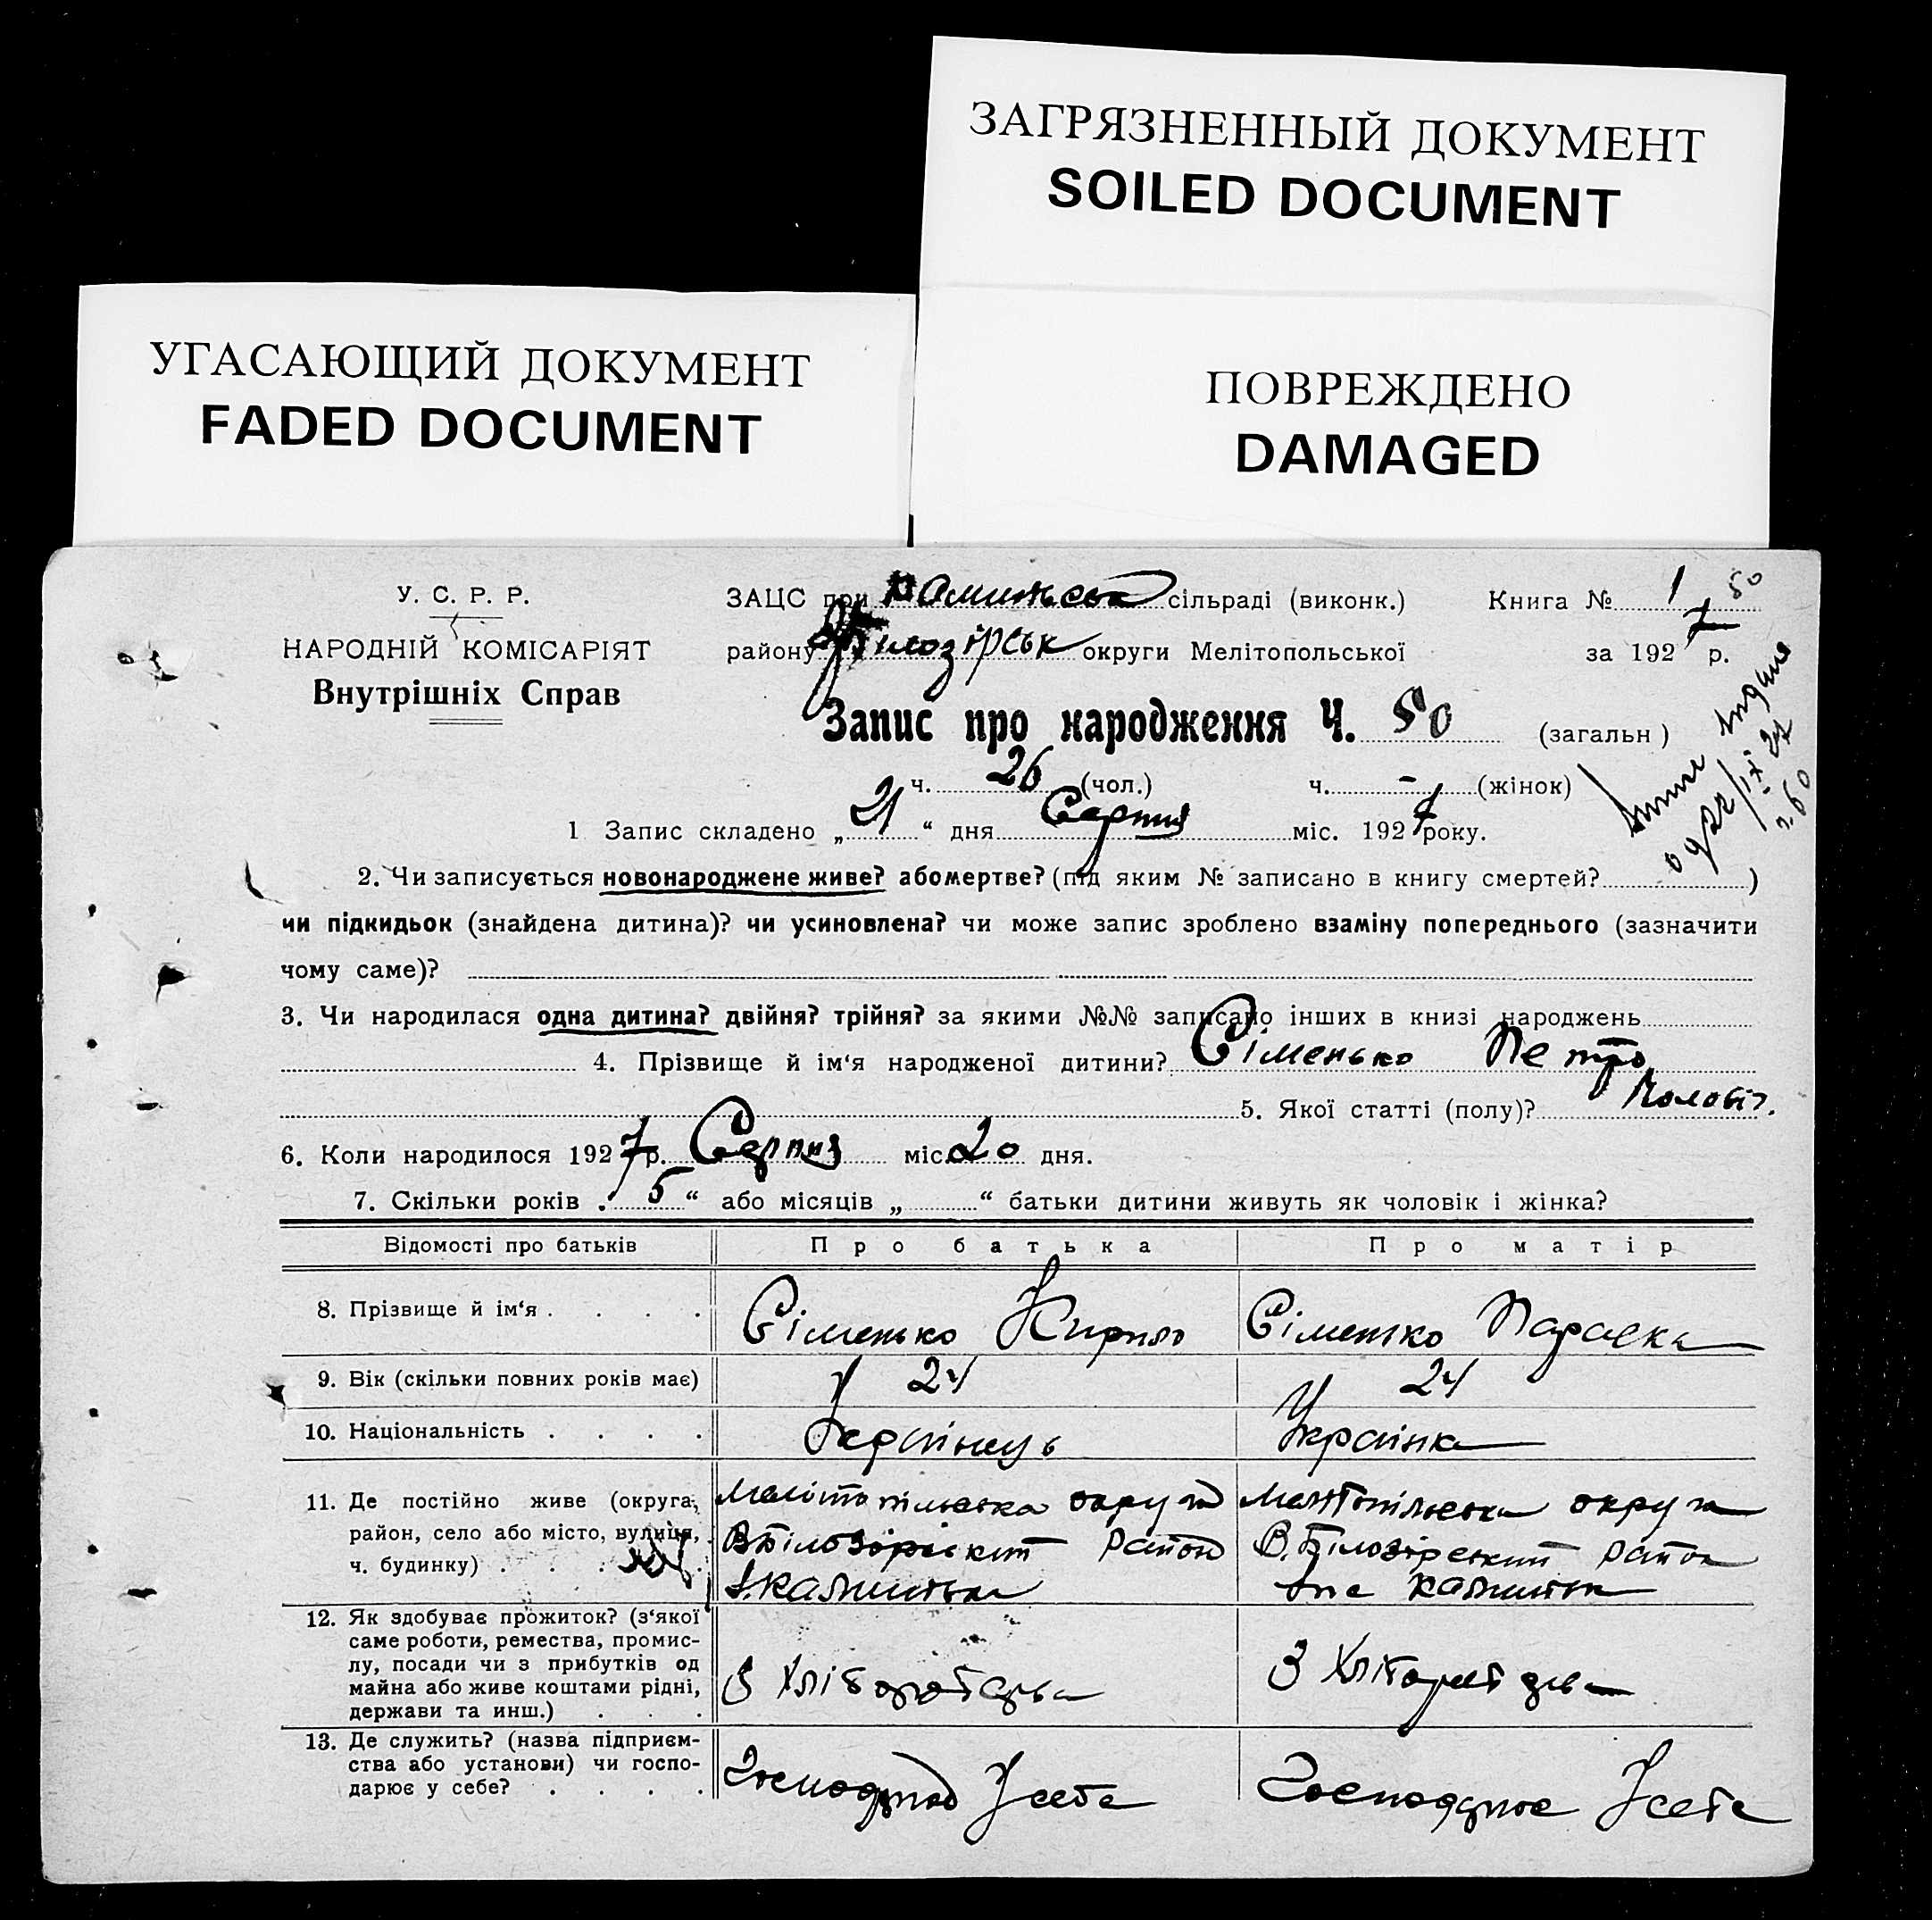 ЗАГРЯЗНЕННЫЙ ДОКУМЕНТ
SOILED DOCUMENT
УГАСАЮЩИЙ ДОКУМЕНТ
FADED DOCUMENT
ПОВРЕЖДЕНО
DAMAGED
У. С. Р. Р.
НАРОДНІЙ КОМІСАРІЯТ
Внутрішніх Справ
ЗАЦС при сільраді (виконк.) Книга № 1 50
району Білозірськ округи Мелітопольської за 1927 р.
Запис про народження Ч. 50 (загальн)
ч. 26 (чол.) ч. - (жінок)
1 Запис складено „21“ дня Серпня міс. 1927 року.
2. Чи записується новонароджене живе? або мертве? (під яким № записано в книгу смертей? )
чи підкидьок (знайдена дитина)? чи усиновлена? чи може запис зроблено взаміну попереднього (зазначити
чому саме)?
3. Чи народилася одна дитина? двійня? трійня? за якими №№ записано інших в книзі народжень
4. Прізвище й ім‘я народженої дитини? Сіменько Петро
5. Якої статті (полу)? Чоловіч.
6. Коли народилося 1927 р. Серпня міс. 20 дня.
7. Скільки років „5“ або місяців „ “ батьки дитини живуть як чоловік і жінка?
Відомості про батьків Про батька Про матір
8. Прізвище й ім‘я . . . . Сіменько Кирило Сіменько Параска
9. Вік (скільки повних років має) 24 24
10. Національність . . . . Українець Українка
11. Де постійно живе (округа, Мелітопільська округа Мелітопільська округа
район, село або місто, вулиця, В Білозірский район В. Білозірський район
ч. будинку) . . . .
12. Як здобуває прожиток? (з‘якої
саме роботи, ремества, промис-
лу, посади чи з прибутків од З Хліборобства З Хліборобства
майна або живе коштами рідні,
держави та инш.) . . .
13. Де служить? (назва підприєм-
ства або установи) чи госпо- Господарює У себе Господарює У себе
дарює у себе? . . . .